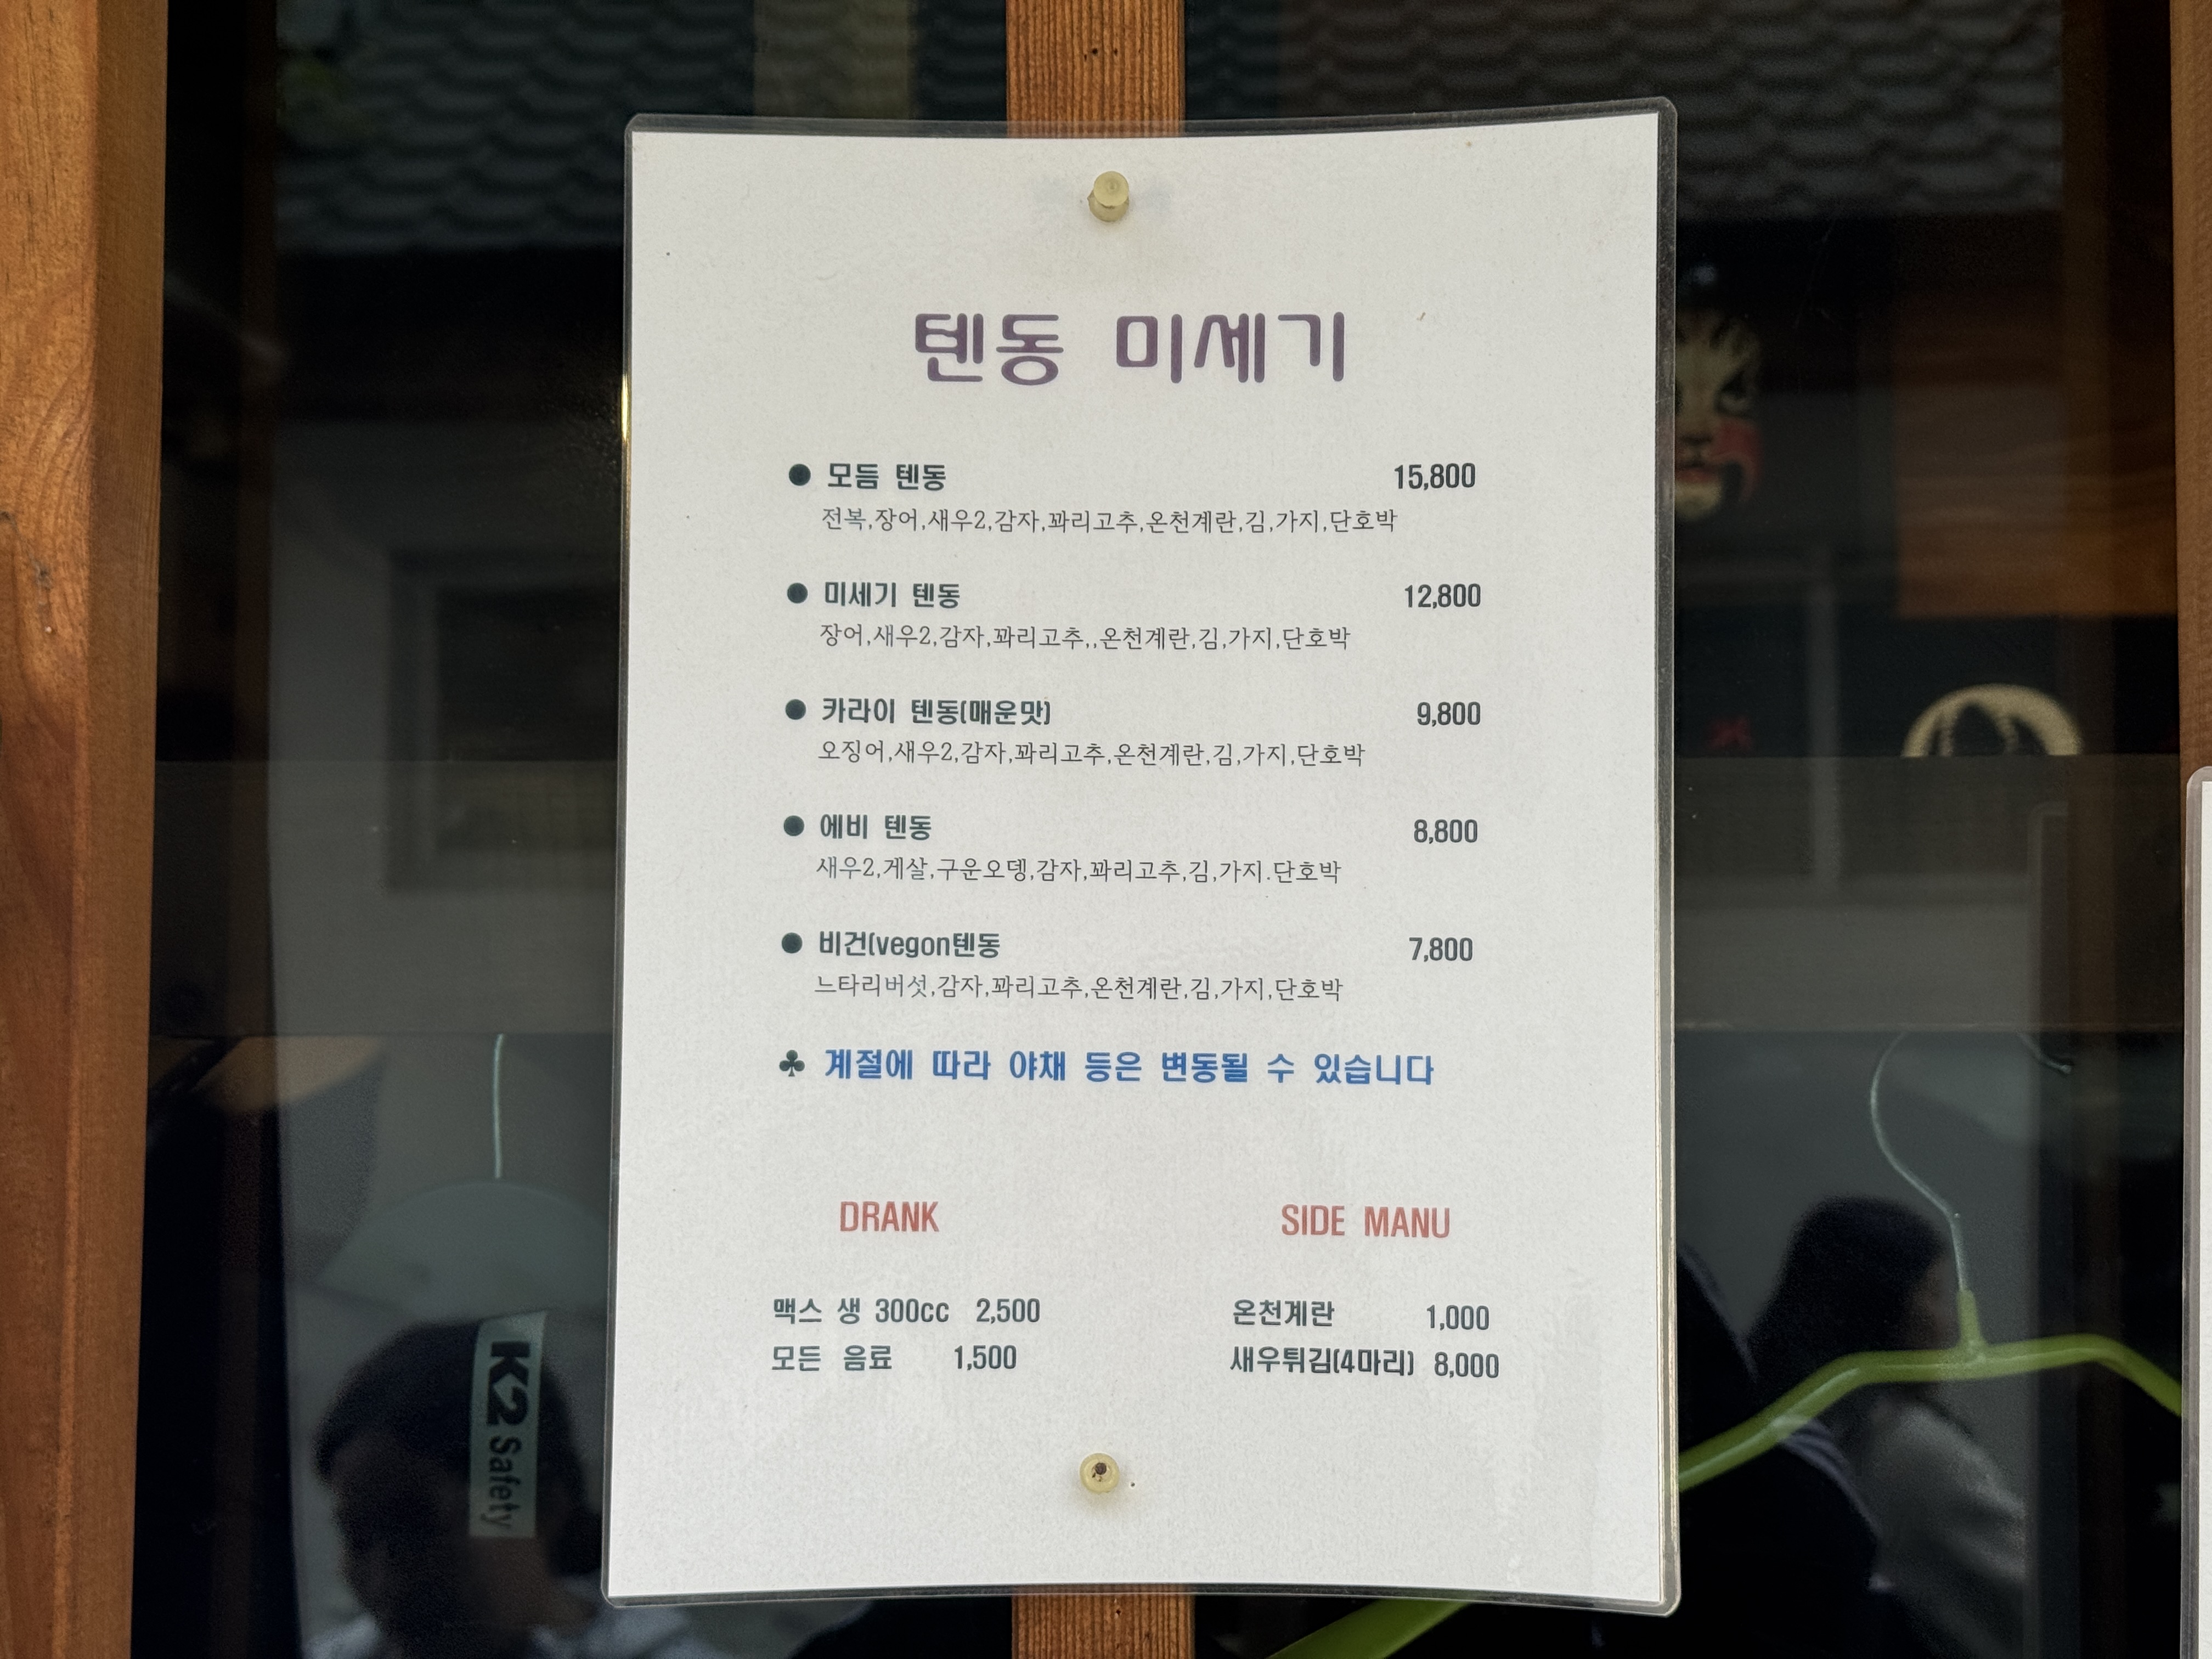 텐동 미세기
● 모듬 텐동 15,800
전복,장어,새우2,감자,꽈리고추,온천계란,김,가지,단호박
● 미세기 텐동 12,800
장어,새우2,감자,꽈리고추,,온천계란,김,가지,단호박
● 카라이 텐동(매운맛) 9,800
오징어,새우2,감자,꽈리고추,온천계란,김,가지,단호박
● 에비 텐동 8,800
새우2,게살,구운오뎅,감자,꽈리고추,김,가지.단호박
● 비건(vegon텐동 7,800
느타리버섯,감자,꽈리고추,온천계란,김,가지,단호박
♣ 계절에 따라 야채 등은 변동될 수 있습니다
DRANK
맥스 생 300cc 2,500
모든 음료 1,500
SIDE MANU
온천계란 1,000
새우튀김(4마리) 8,000
K2 Safety